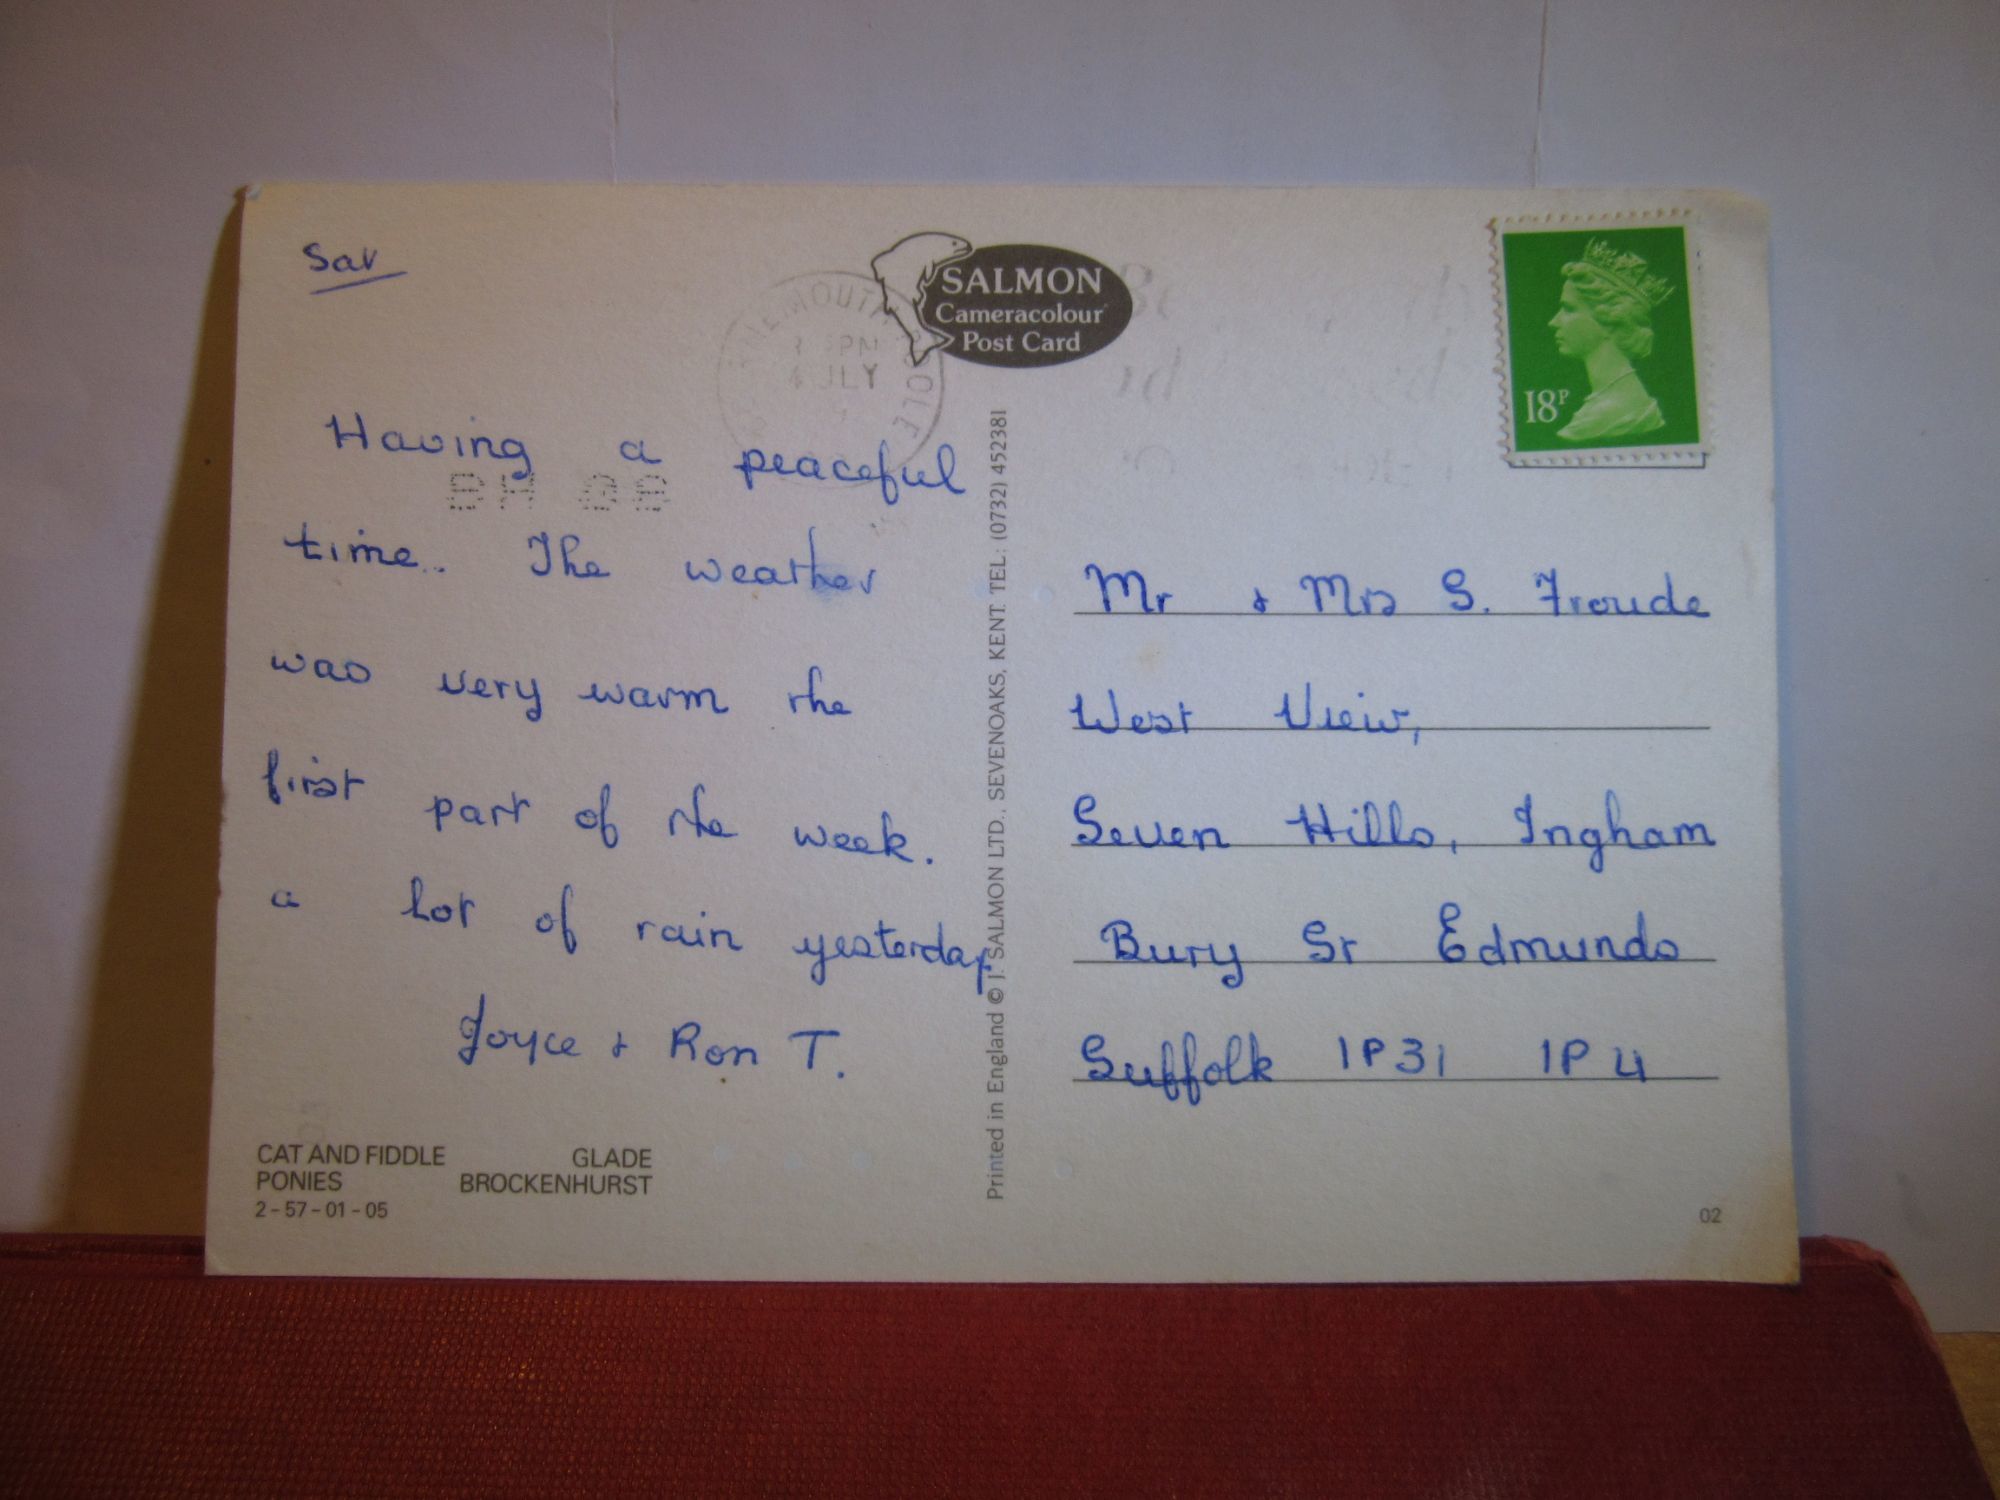 Sat
SALMON
Cameracolour
Post Card
18P
PM
JLY
Having a peaceful
time.. The weather
was very warm the
first part of the week.
a lot of rain yesterday
Joyce & Ron T.
CAT AND FIDDLE GLADE
PONIES BROCKENHURST
2-57-01-05
Printed in England © J. SALMON LTD., SEVENOAKS, KENT. TEL: (0732) 452381
Mr & Mrs S. Froude
West View,
Seven Hills, Ingham
Bury St Edmunds
Suffolk IP31 1P4
02